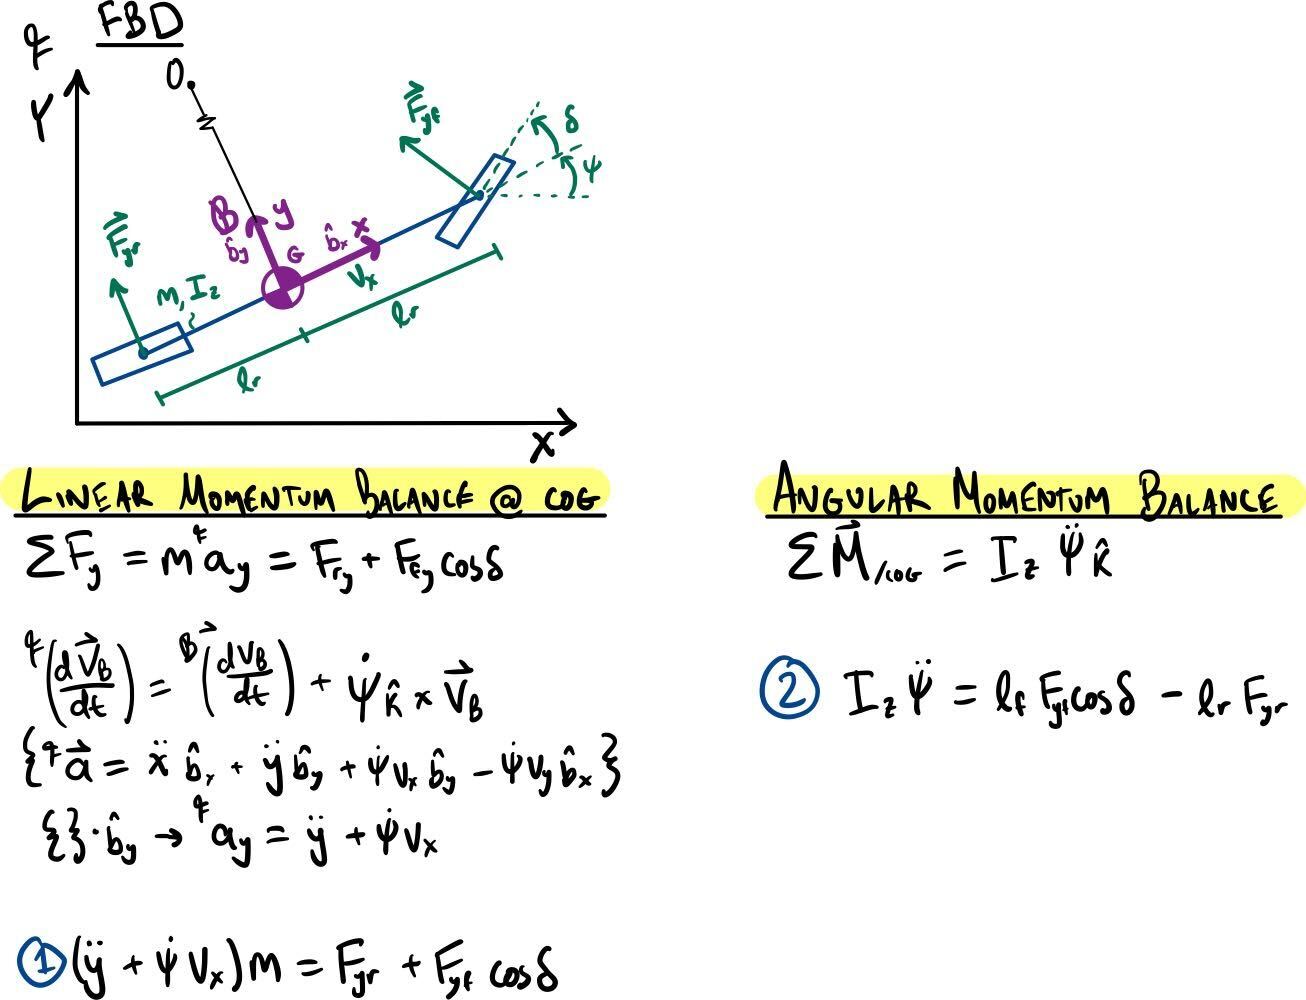 FBD
𝓕
O
Y
F⃗_yf
δ
ψ
B y
b̂_y
G
b̂_x x
v_x
F⃗_yr
m, I_z
l_r
l_r
X
LINEAR MOMENTUM BALANCE @ COG
ΣF_y = m ^𝓕a_y = F_ry + F_fy cosδ
^𝓕(dV⃗_B/dt) = ^B(dV⃗_B/dt) + ψ̇ k̂ × V⃗_B
{^𝓕a⃗ = ẍ b̂_x + ÿ b̂_y + ψ̇ v_x b̂_y − ψ̇ v_y b̂_x}
{}·b̂_y → ^𝓕a_y = ÿ + ψ̇ v_x
① (ÿ + ψ̇ v_x)m = F_yr + F_yf cosδ
ANGULAR MOMENTUM BALANCE
ΣM⃗_/COG = I_z ψ̈ k̂
② I_z ψ̈ = l_f F_yf cosδ − l_r F_yr